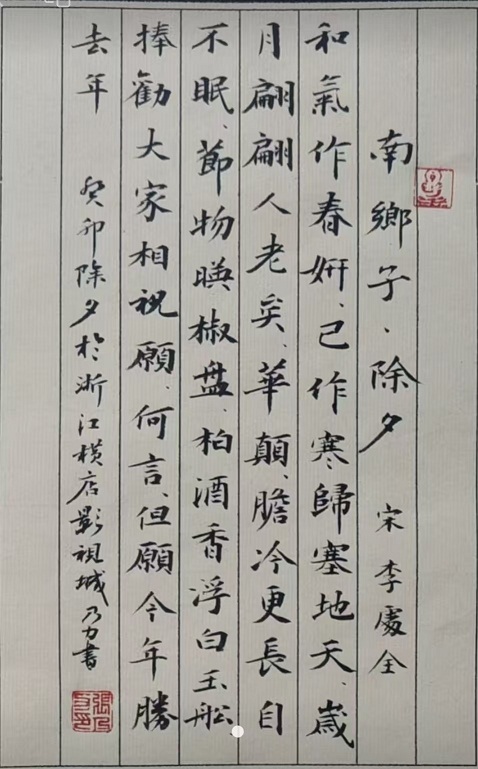 南鄉子、除夕 宋 李處全
和氣作春妍、已作寒歸塞地天、歲
月翩翩人老矣、華顛、膽冷更長自
不眠、節物暎椒盤、柏酒香浮白玉舩
捧勸大家相祝願、何言、但願今年勝
去年 癸卯除夕於浙江橫店影視城乃力書